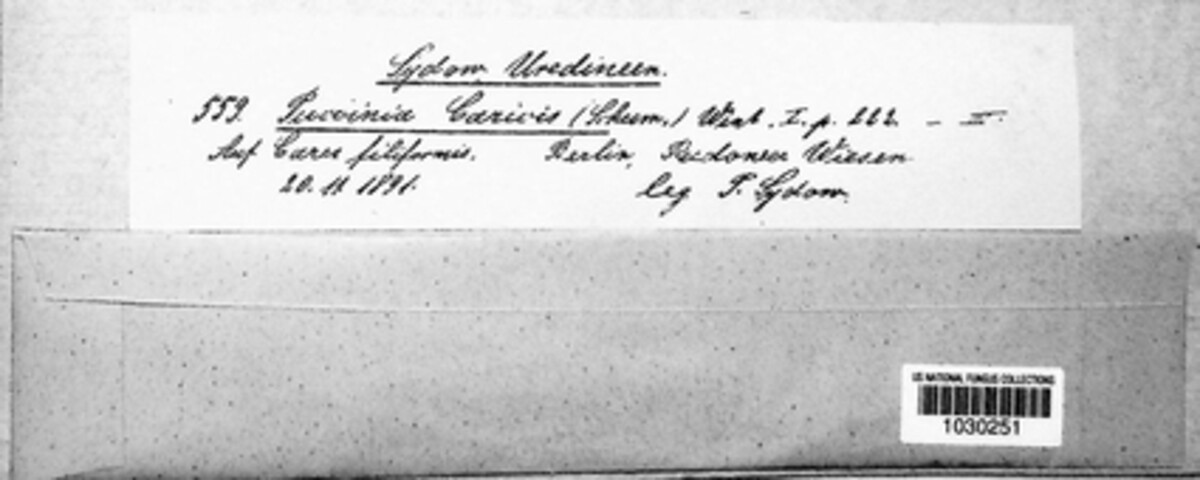 Sydow, Uredineen.
559. Puccinia Caricis (Schum.) Wint. I. p. 222. – II.
Auf Carex filiformis. Berlin, Rudower Wiesen
20. 11. 1891. leg. P. Sydow.
US NATIONAL FUNGUS COLLECTIONS
1030251